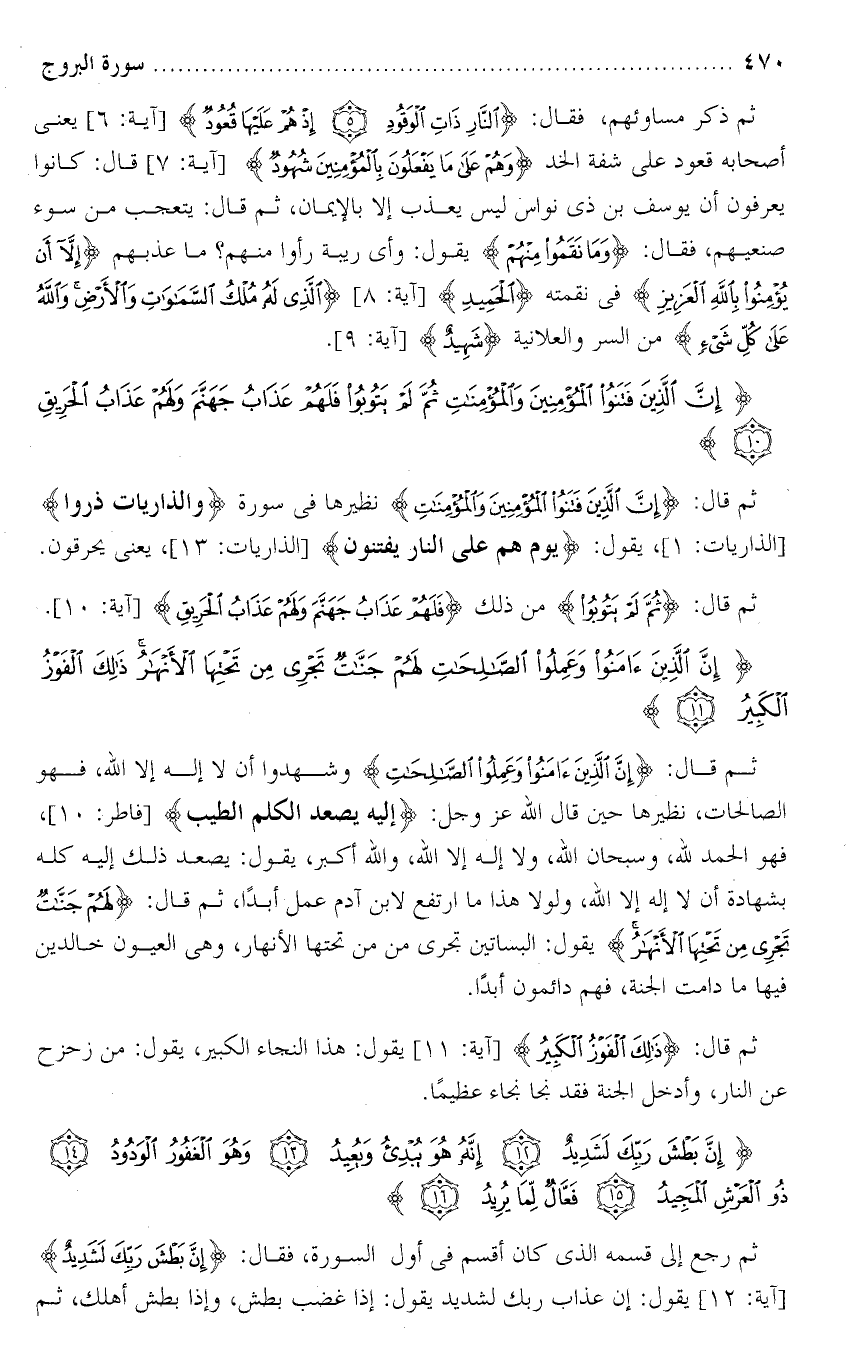 ٤٧٠ ................................................................ سورة البروج
ثم ذكر مساوئهم، فقال: ﴿ٱلنَّارِ ذَاتِ ٱلْوَقُودِ ٥ إِذْ هُمْ عَلَيْهَا قُعُودٌ﴾ [آية: ٦] يعنى
أصحابه قعود على شفة الخد ﴿وَهُمْ عَلَىٰ مَا يَفْعَلُونَ بِٱلْمُؤْمِنِينَ شُهُودٌ﴾ [آية: ٧] قال: كانوا
يعرفون أن يوسف بن ذى نواس ليس يعذب إلا بالإيمان، ثم قال: يتعجب من سوء
صنعيهم، فقال: ﴿وَمَا نَقَمُوا۟ مِنْهُمْ﴾ يقول: وأى ريبة رأوا منهم؟ ما عذبهم ﴿إِلَّآ أَن
يُؤْمِنُوا۟ بِٱللَّهِ ٱلْعَزِيزِ﴾ فى نقمته ﴿ٱلْحَمِيدِ﴾ [آية: ٨] ﴿ٱلَّذِى لَهُۥ مُلْكُ ٱلسَّمَٰوَٰتِ وَٱلْأَرْضِ ۚ وَٱللَّهُ
عَلَىٰ كُلِّ شَىْءٍ﴾ من السر والعلانية ﴿شَهِيدٌ﴾ [آية: ٩].
﴿إِنَّ ٱلَّذِينَ فَتَنُوا۟ ٱلْمُؤْمِنِينَ وَٱلْمُؤْمِنَٰتِ ثُمَّ لَمْ يَتُوبُوا۟ فَلَهُمْ عَذَابُ جَهَنَّمَ وَلَهُمْ عَذَابُ ٱلْحَرِيقِ
١٠﴾
ثم قال: ﴿إِنَّ ٱلَّذِينَ فَتَنُوا۟ ٱلْمُؤْمِنِينَ وَٱلْمُؤْمِنَٰتِ﴾ نظيرها فى سورة ﴿والذاريات ذروا﴾
[الذاريات: ١]، يقول: ﴿يوم هم على النار يفتنون﴾ [الذاريات: ١٣]، يعنى يحرقون.
ثم قال: ﴿ثُمَّ لَمْ يَتُوبُوا۟﴾ من ذلك ﴿فَلَهُمْ عَذَابُ جَهَنَّمَ وَلَهُمْ عَذَابُ ٱلْحَرِيقِ﴾ [آية: ١٠].
﴿إِنَّ ٱلَّذِينَ ءَامَنُوا۟ وَعَمِلُوا۟ ٱلصَّٰلِحَٰتِ لَهُمْ جَنَّٰتٌ تَجْرِى مِن تَحْتِهَا ٱلْأَنْهَٰرُ ۚ ذَٰلِكَ ٱلْفَوْزُ
ٱلْكَبِيرُ ١١﴾
ثم قال: ﴿إِنَّ ٱلَّذِينَ ءَامَنُوا۟ وَعَمِلُوا۟ ٱلصَّٰلِحَٰتِ﴾ وشهدوا أن لا إله إلا الله، فهو
الصالحات، نظيرها حين قال الله عز وجل: ﴿إليه يصعد الكلم الطيب﴾ [فاطر: ١٠]،
فهو الحمد لله، وسبحان الله، ولا إله إلا الله، والله أكبر، يقول: يصعد ذلك إليه كله
بشهادة أن لا إله إلا الله، ولولا هذا ما ارتفع لابن آدم عمل أبدًا، ثم قال: ﴿لَهُمْ جَنَّٰتٌ
تَجْرِى مِن تَحْتِهَا ٱلْأَنْهَٰرُ ۚ﴾ يقول: البساتين تجرى من من تحتها الأنهار، وهى العيون خالدين
فيها ما دامت الجنة، فهم دائمون أبدًا.
ثم قال: ﴿ذَٰلِكَ ٱلْفَوْزُ ٱلْكَبِيرُ﴾ [آية: ١١] يقول: هذا النجاء الكبير، يقول: من زحزح
عن النار، وأدخل الجنة فقد نجا نجاء عظيمًا.
﴿إِنَّ بَطْشَ رَبِّكَ لَشَدِيدٌ ١٢ إِنَّهُۥ هُوَ يُبْدِئُ وَيُعِيدُ ١٣ وَهُوَ ٱلْغَفُورُ ٱلْوَدُودُ ١٤
ذُو ٱلْعَرْشِ ٱلْمَجِيدُ ١٥ فَعَّالٌ لِّمَا يُرِيدُ ١٦﴾
ثم رجع إلى قسمه الذى كان أقسم فى أول السورة، فقال: ﴿إِنَّ بَطْشَ رَبِّكَ لَشَدِيدٌ﴾
[آية: ١٢] يقول: إن عذاب ربك لشديد يقول: إذا غضب بطش، وإذا بطش أهلك، ثم